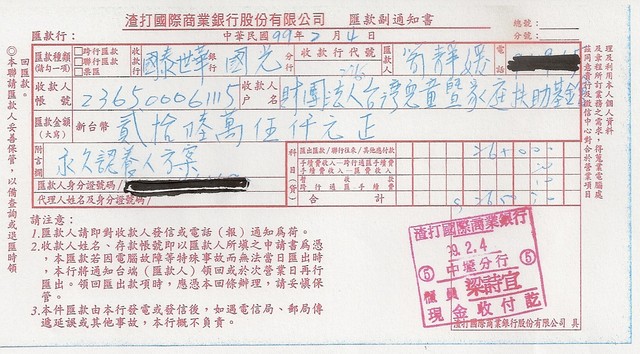 渣打國際商業銀行股份有限公司 匯款副通知書
總號:
分號:
匯款行: 中華民國99年2月4日
匯款種類(請勾一項) □跨行匯款 □聯行匯款 □票匯 收款行 國泰世華銀行 國光分行 收款行代號 匯款人 翁靜媛 電話
收款人帳號 236500061115 收款人戶名 財團法人台灣兒童暨家庭扶助基金
匯款金額(大寫) 新台幣 貳拾陸萬伍仟元正
附言欄 永久認養人方案
科目(貸) 匯出匯款/聯行往來/其他應付款
手續費收入-跨行通匯手續費
手續費收入-匯費收入
暫收款
跨行通匯手續費
合計
匯款人身分證號碼:
代理人姓名及身分證號碼:
請注意:
1.匯款人請即對收款人發信或電話(報)通知為荷。
2.收款人姓名、存款帳號即以匯款人所填之申請書為憑,本匯款若因電腦故障等特殊事故而無法當日匯出時,本行將通知台端(匯款人)領回或於次營業日再行匯出。領回匯出款項時,應憑本回條辦理,請妥慎保管。
3.本件匯款由本行發電或發信後,如遇電信局、郵局傳遞延誤或其他事故,本行概不負責。
◎本聯請匯款人妥善保管,以備查詢或退匯時領回匯款。
渣打國際商業銀行
99.2.4
⑤ 中壢分行 ⑤
櫃員 梁詩宜
現金收付訖
渣打國際商業銀行股份有限公司 具